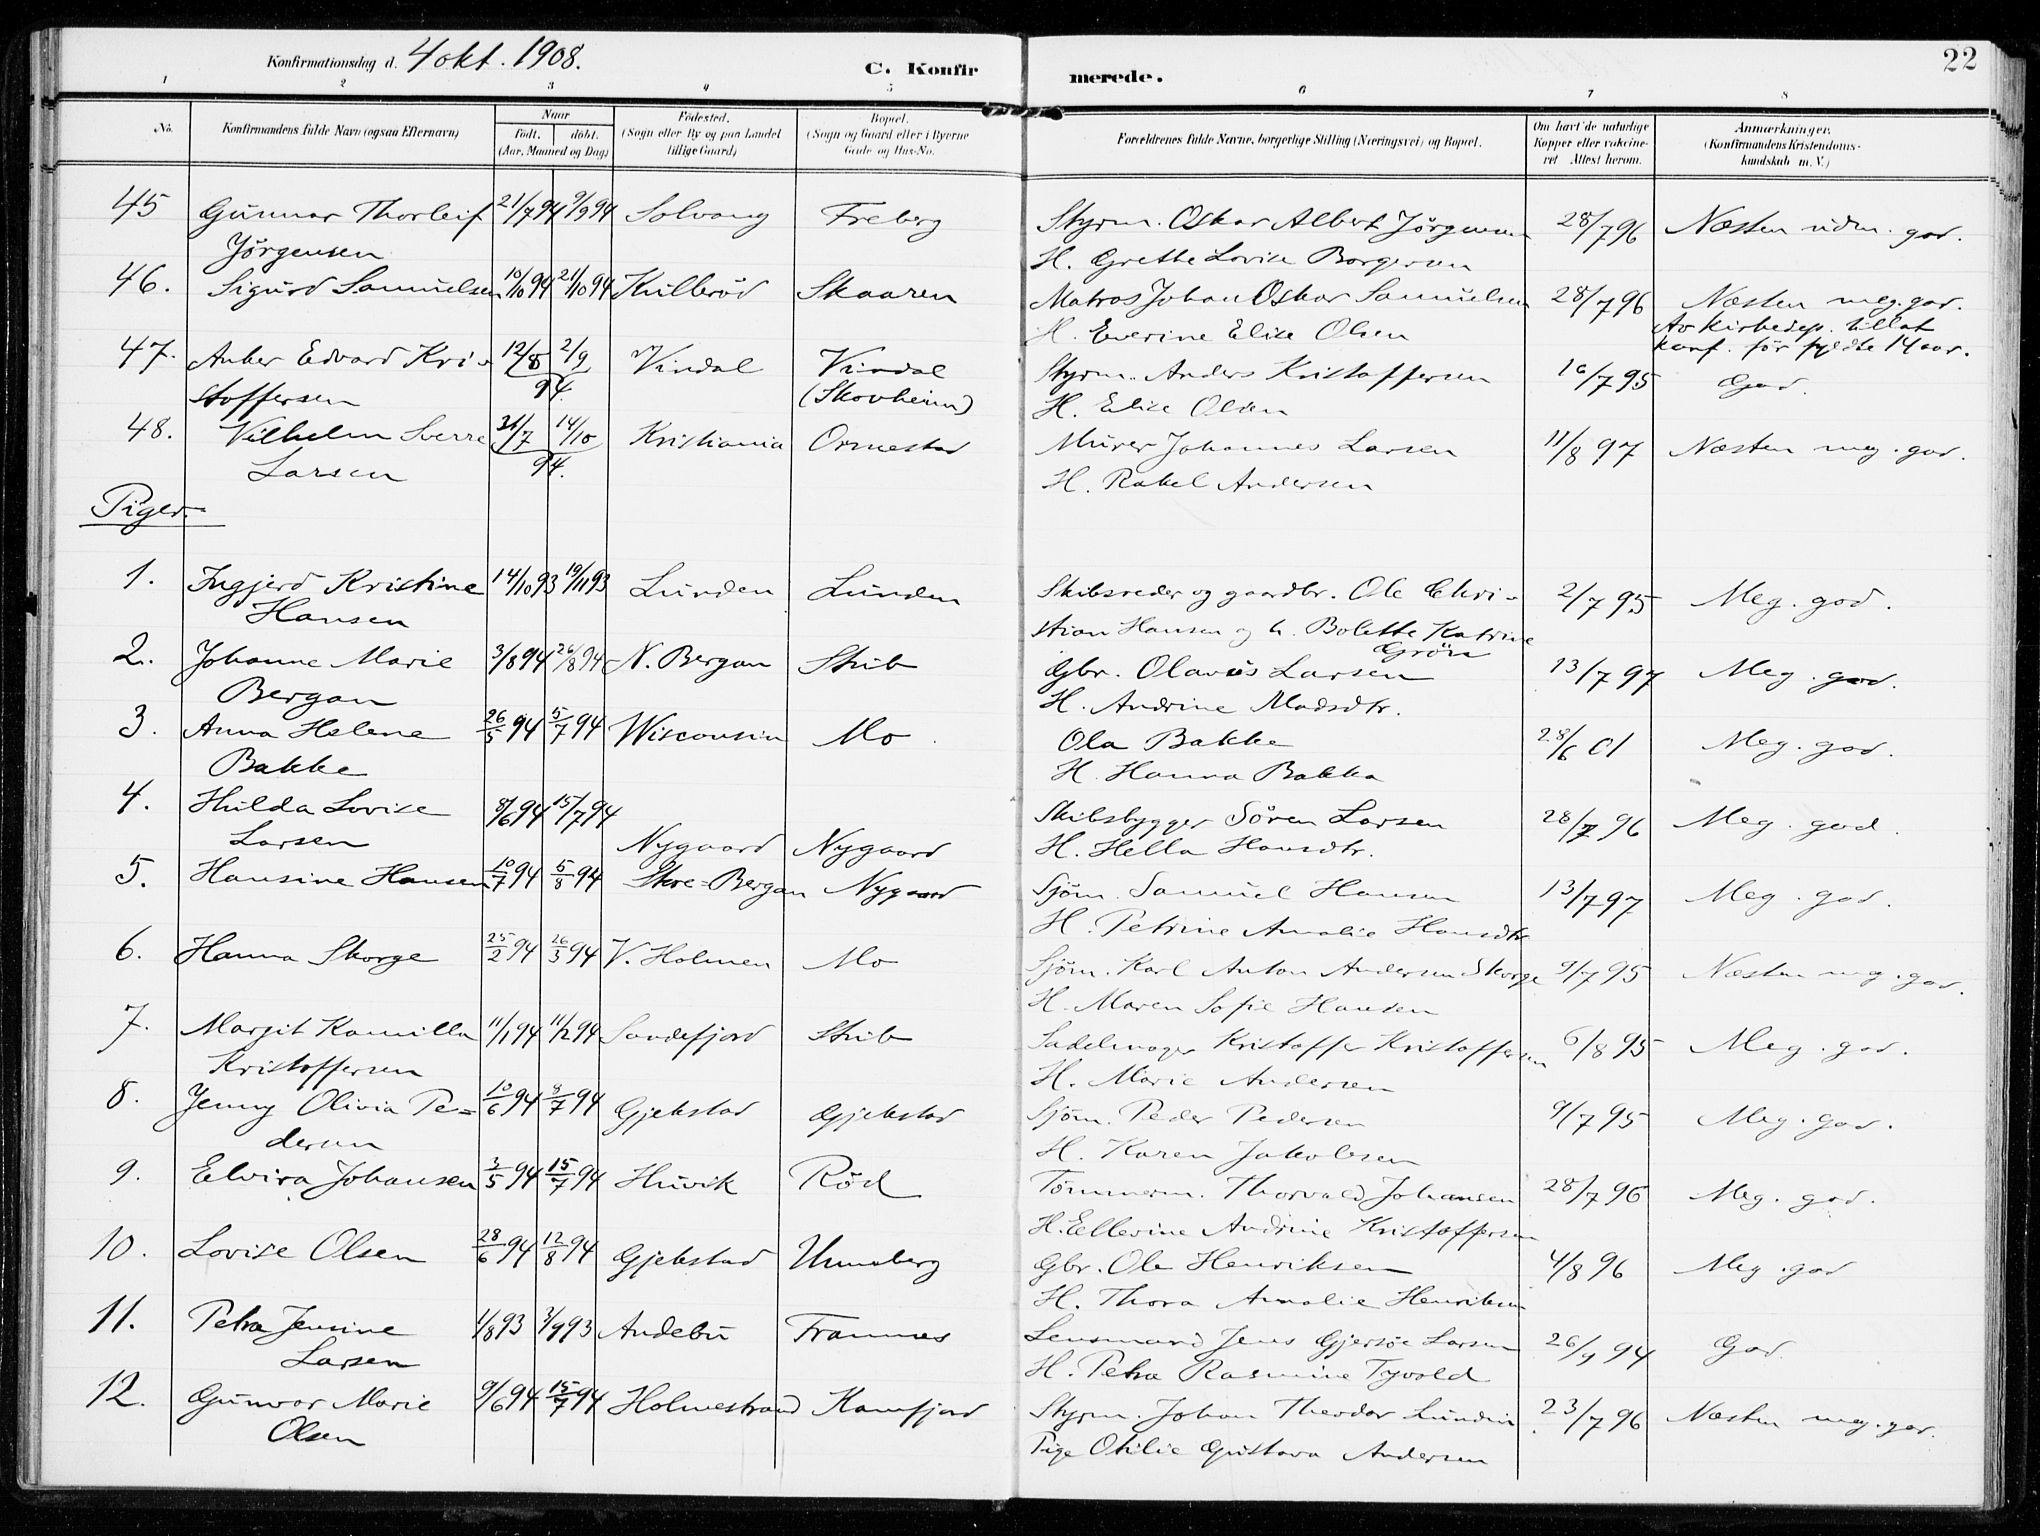 Konfirmationsdag d. 4 okt. 1908.
C. Konfirmerede.
22
1 2 3 4 5 6 7 8
No. | Konfirmandens fulde Navn (ogsaa Efternavn) | Naar født. døbt. (Aar, Maaned og Dag) | Fødested. (Sogn eller By og paa Landet tillige Gaard) | Bopæl. (Sogn og Gaard eller i Byerne Gade og Hus-No. | Forældrenes fulde Navne, borgerlige Stilling (Næringsvei) og Bopæl. | Om havt de naturlige Kopper eller vakcineret Attest herom. | Anmærkninger. (Konfirmandens Kristendomskundskab m. V.)
45 Gunnar Thorleif 21/7 94 9/9 94 Solvang Freberg Styrm. Oskar Albert Jørgensen 28/7 96 Næsten udm. god.
Jørgensen H. Grette Lovise Borgersen
46. Sigurd Samuelsen 10/10 94 21/10 94 Kullerød Skaaren Matros Johan Oskar Samuelsen 28/7 96 Næsten meg. god.
H. Everine Elise Olsen Av Kirkedep. tillat
konf. før fyldte 14 aar.
47. Anker Edvard Kri- 12/8 2/9 Vindal Vindal Styrm. Anders Kristoffersen 16/7 95 God.
stoffersen 94 (Skovheim) H. Elise Olsen
48. Vilhelm Sverre 31/7 14/10 Kristiania Ormestad Murer Johannes Larsen 11/8 97 Næsten meg. god.
Larsen 94. H. Rakel Andersen
Piger.
1. Ingjerd Kristine 14/10 93 19/11 93 Lunden Lunden Skibsreder og gaardbr. Ole Chri- 2/7 95 Meg. god.
Hansen stian Hansen og h. Bolette Katrine
Grøn
2. Johanne Marie 3/8 94 26/8 94 N. Bergan Stub Gbr. Olavus Larsen 13/7 97 Meg. god.
Bergan H. Andrine Madsdtr.
3. Anna Helene 26/5 94 5/7 94 Wisconsin Mo Ola Bakke 28/6 01 Meg. god.
Bakke H. Hanna Bakka
4. Hulda Lovise 8/6 94 15/7 94 Nygaard Nygaard Skibsbygger Søren Larsen 28/7 96 Meg. god.
Larsen H. Hella Hansdtr.
5. Hansine Hansen 10/7 94 5/8 94 Skre-Bergan Nygaard Sjøm. Samuel Hansen 13/7 97 Meg. god.
H. Petrine Amalie Hansdtr
6. Hanna Skorge 25/2 94 26/3 94 V. Holmen Mo Sjøm. Karl Anton Andersen Skorge 9/7 95 Næsten meg. god.
H. Maren Sofie Hansen
7. Margit Kamilla 11/1 94 11/2 94 Sandefjord Stub Sadelmager Kristoffer Kristoffersen 6/8 95 Meg. god.
Kristoffersen H. Marie Andersen
8. Jenny Olivia Pe- 10/6 94 8/7 94 Gjekstad Gjekstad Sjøm. Peder Pedersen 9/7 95 Meg. god.
dersen H. Karen Jakobsen
9. Elvira Johansen 3/5 94 15/7 94 Huvik Rød Tømmerm. Thorvald Johansen 28/7 96 Meg. god.
H. Ellevine Andrine Kristoffersen
10. Lovise Olsen 28/6 94 12/8 94 Gjekstad Unneberg Gbr. Ole Henriksen 4/8 96 Meg. god
H. Thora Amalie Henriksen
11. Petra Jensine 1/8 93 3/9 93 Andebu Framnes Lensmand Jens Gjersøe Larsen 26/9 94 God
Larsen H. Petra Rasmine Tyvold
12. Gunvor Marie 9/6 94 15/7 94 Holmestrand Kamfjord Styrm. Johan Theodor Lundin 23/7 96 Næsten meg. god.
Olsen Pige Otilie Gustava Andersen